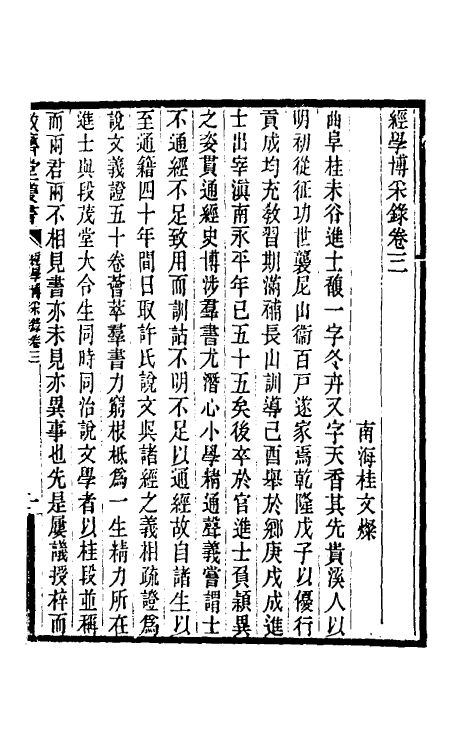 經學博采錄卷三
南海桂文燦
曲阜桂未谷進士馥一字冬卉又字天香其先貴溪人以
明初從征功世襲尼山衞百戸遂家焉乾隆戊子以優行
貢成均充敎習期滿補長山訓導己酉舉於鄉庚戌成進
士出宰滇南永平年已五十五矣後卒於官進士負穎異
之姿貫通經史博涉羣書尤潛心小學精通聲義嘗謂士
不通經不足致用而訓詁不明不足以通經故自諸生以
至通籍四十年間日取許氏說文與諸經之義相疏證爲
說文義證五十卷薈萃羣書力窮根柢爲一生精力所在
進士與段茂堂大令生同時同治說文學者以桂段並稱
而兩君兩不相見書亦未見亦異事也先是屢議授梓而
敬躋堂叢書
經學博采錄卷三
一